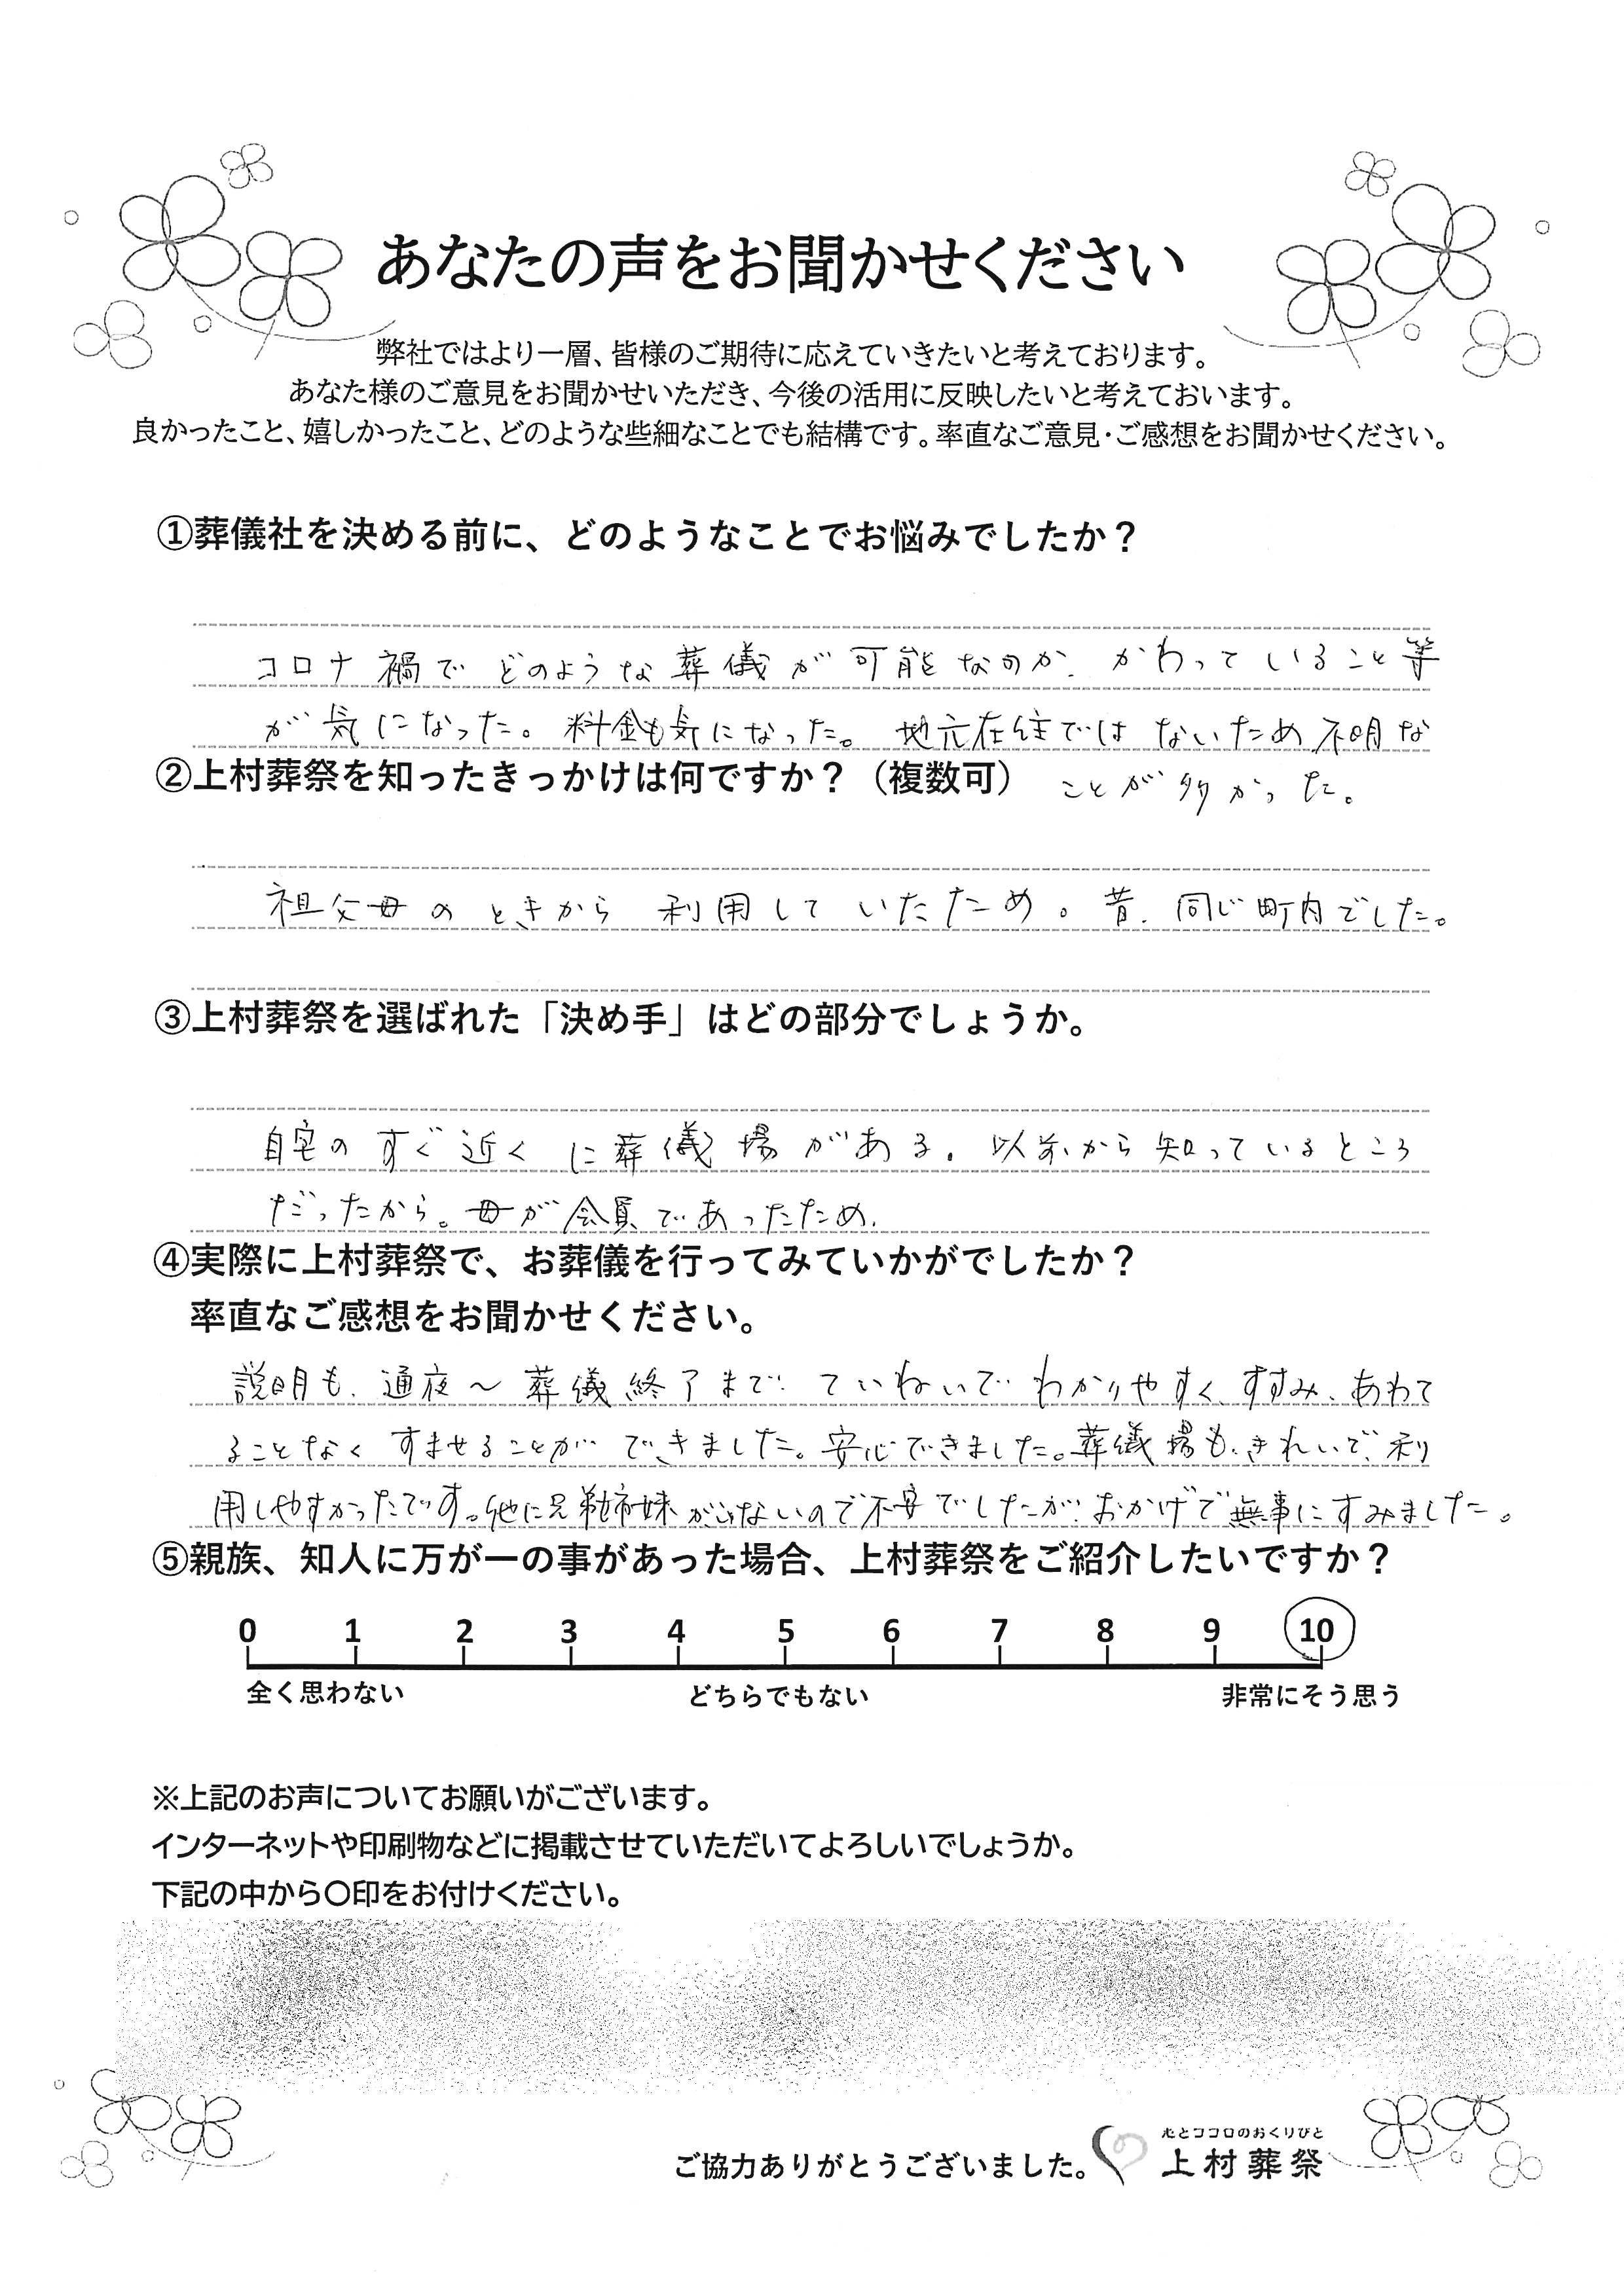 あなたの声をお聞かせください
弊社ではより一層、皆様のご期待に応えていきたいと考えております。
あなた様のご意見をお聞かせいただき、今後の活用に反映したいと考えておいます。
良かったこと、嬉しかったこと、どのような些細なことでも結構です。率直なご意見・ご感想をお聞かせください。
①葬儀社を決める前に、どのようなことでお悩みでしたか？
コロナ禍でどのような葬儀が可能なのか、かわっていること等
が気になった。料金も気になった。地元在住ではないため、不明な
ことが多かった。
②上村葬祭を知ったきっかけは何ですか？（複数可）
祖父母のときから利用していたため。昔、同じ町内でした。
③上村葬祭を選ばれた「決め手」はどの部分でしょうか。
自宅のすぐ近くに葬儀場がある。以前から知っているところ
だったから。母が会員であったため。
④実際に上村葬祭で、お葬儀を行ってみていかがでしたか？
率直なご感想をお聞かせください。
説明も、通夜～葬儀終了まで、ていねいでわかりやすく、すすみ、あわて
ることなくすませることができました。安心できました。葬儀場も、きれいで、利
用しやすかったです。他に兄弟姉妹がいないので不安でしたが、おかげで無事にすみました。
⑤親族、知人に万が一の事があった場合、上村葬祭をご紹介したいですか？
0 1 2 3 4 5 6 7 8 9 10
全く思わない どちらでもない 非常にそう思う
※上記のお声についてお願いがございます。
インターネットや印刷物などに掲載させていただいてよろしいでしょうか。
下記の中から〇印をお付けください。
心とココロのおくりびと
ご協力ありがとうございました。 上村葬祭